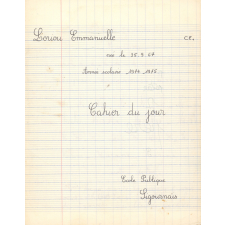 Loriou Emmanuelle C.E.
née le 25.9.67
Année scolaire 1974 1975
Cahier du jour
Ecole Publique
Sigournais